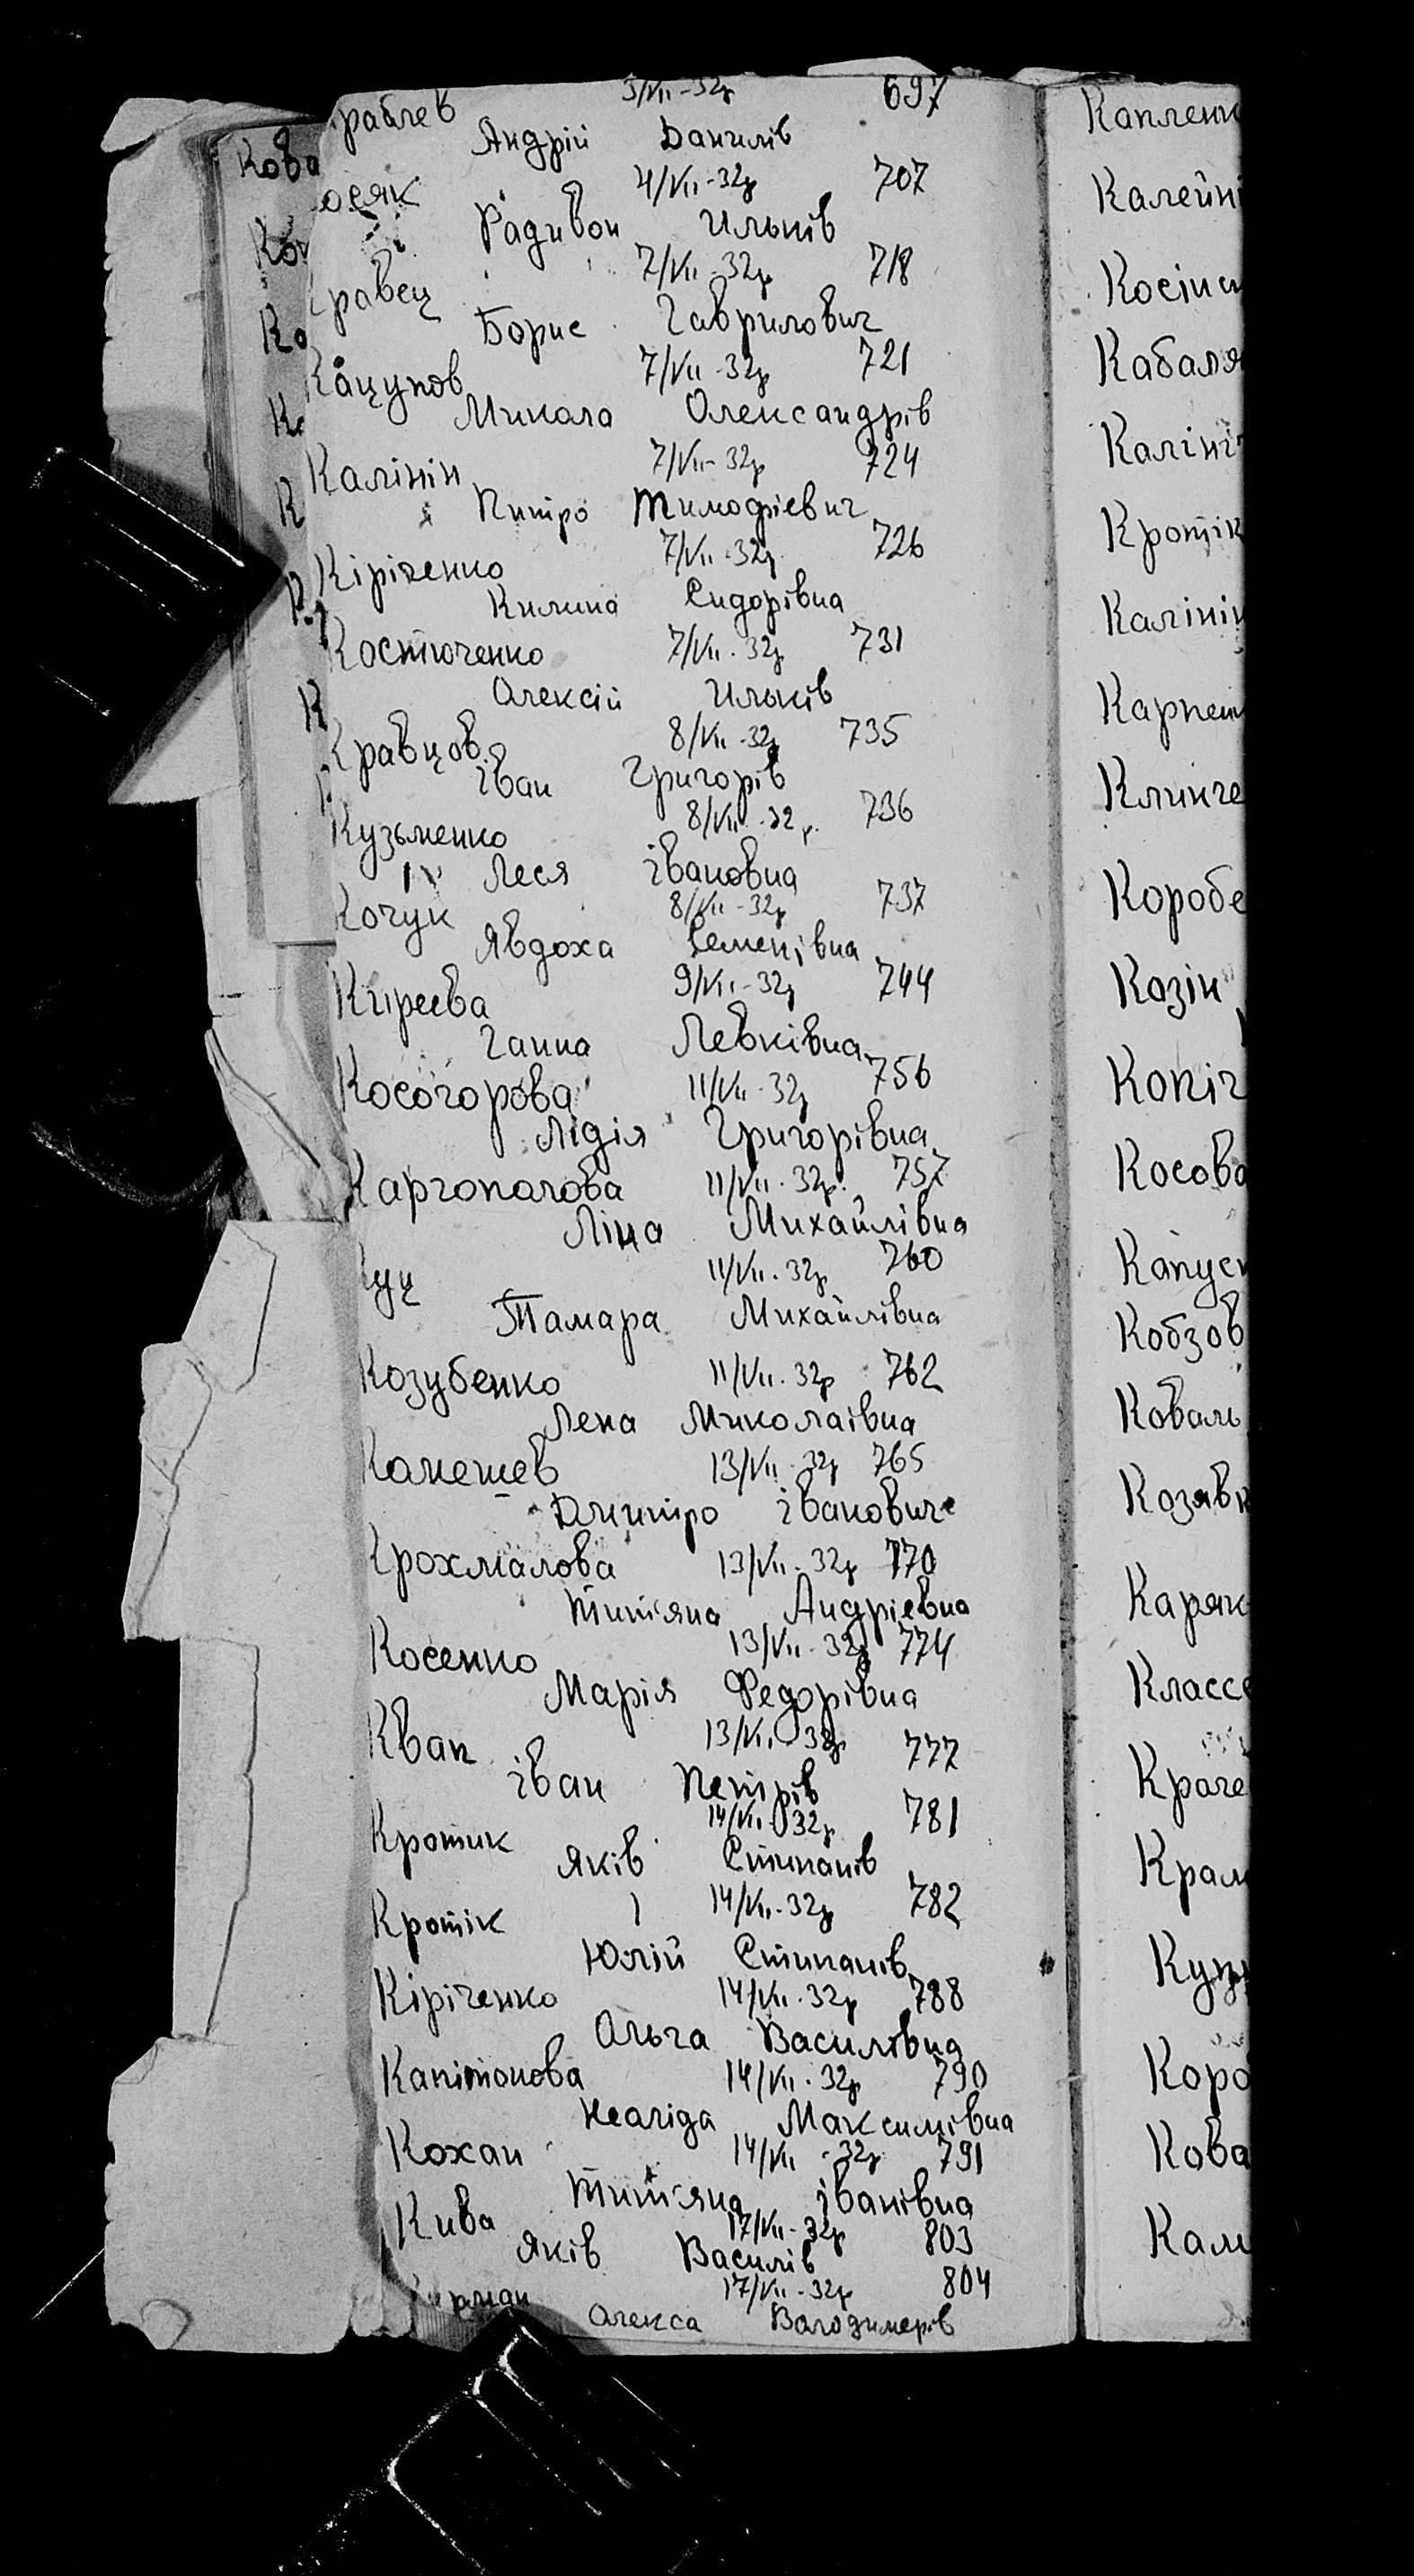 раблев 3/VII-32р 697
Андрій Данилів
осяк 4/VII-32р 707
Радивон Ильків
равец 7/VII-32р 718
Борис Гаврилович
Кацупов 7/VII-32р 721
Микола Олександрів
Калінін 7/VII-32р 724
Питро Тимофієвич
Кіріченко 7/VII-32р 726
Килина Сидорівна
Костюченко 7/VII-32р 731
Олексій Ильків
Кравцов 8/VII-32р 735
іван Григорів
Кузьменко 8/VII-32р. 736
Леся івановна
Кочук 8/VII-32р 737
Явдоха Семенівна
Киреєва 9/VII-32р 744
Ганна Левківна
Косогорова 11/VII-32р 756
Лідія Григорівна
Каргополова 11/VII-32р. 757
Ліна Михайлівна
Куц 11/VII-32р 760
Тамара Михайлівна
Козубенко 11/VII-32р 762
Лена Миколаівна
Камешев 13/VII-32р 765
Дмитро івановиче
Крохмалова 13/VII-32р 770
Тит'яна Андрієвна
Косенко 13/VII-32р 774
Марія Федорівна
Кван 13/VII-32р 777
іван Петрів
Кротик 14/VII-32р 781
Яків Стипанів
Кротік 14/VII-32р 782
Юлій Стипанів
Кіріченко 14/VII-32р 788
Ольга Василівна
Капітонова 14/VII-32р 790
Неаліда Максимівна
Кохан 14/VII-32р 791
Тит'яна іванівна
Кива 17/VII-32р 803
Яків Василів
рман 17/VII-32р 804
Олекса Володимерів
Кова
Ко
Капленк
Калейні
Косінс
Кабаля
Калініч
Кротік
Калінін
Карпен
Клинче
Коробе
Козін
Копіч
Косова
Капус
Кобзов
Коваль
Козявк
Каряк
Классе
Краче
Крам
Куз
Коро
Кова
Кам